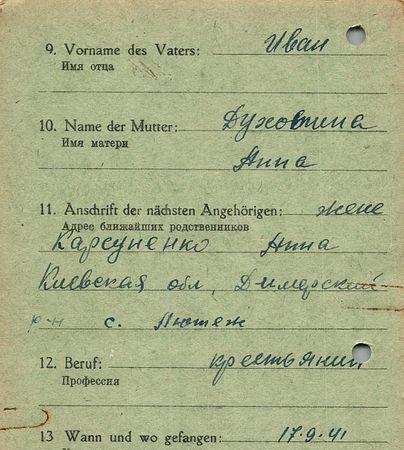 9. Vorname des Vaters: Иван
Имя отца
10. Name der Mutter: Духовтина
Имя матери
Анна
11. Anschrift der nächsten Angehörigen: жене
Адрес ближайших родственников
Карсуненко Анна
Киевская обл. Димерский
р-н с. Лютеж
12. Beruf: крестьянин
Профессия
13 Wann und wo gefangen: 17.9.41